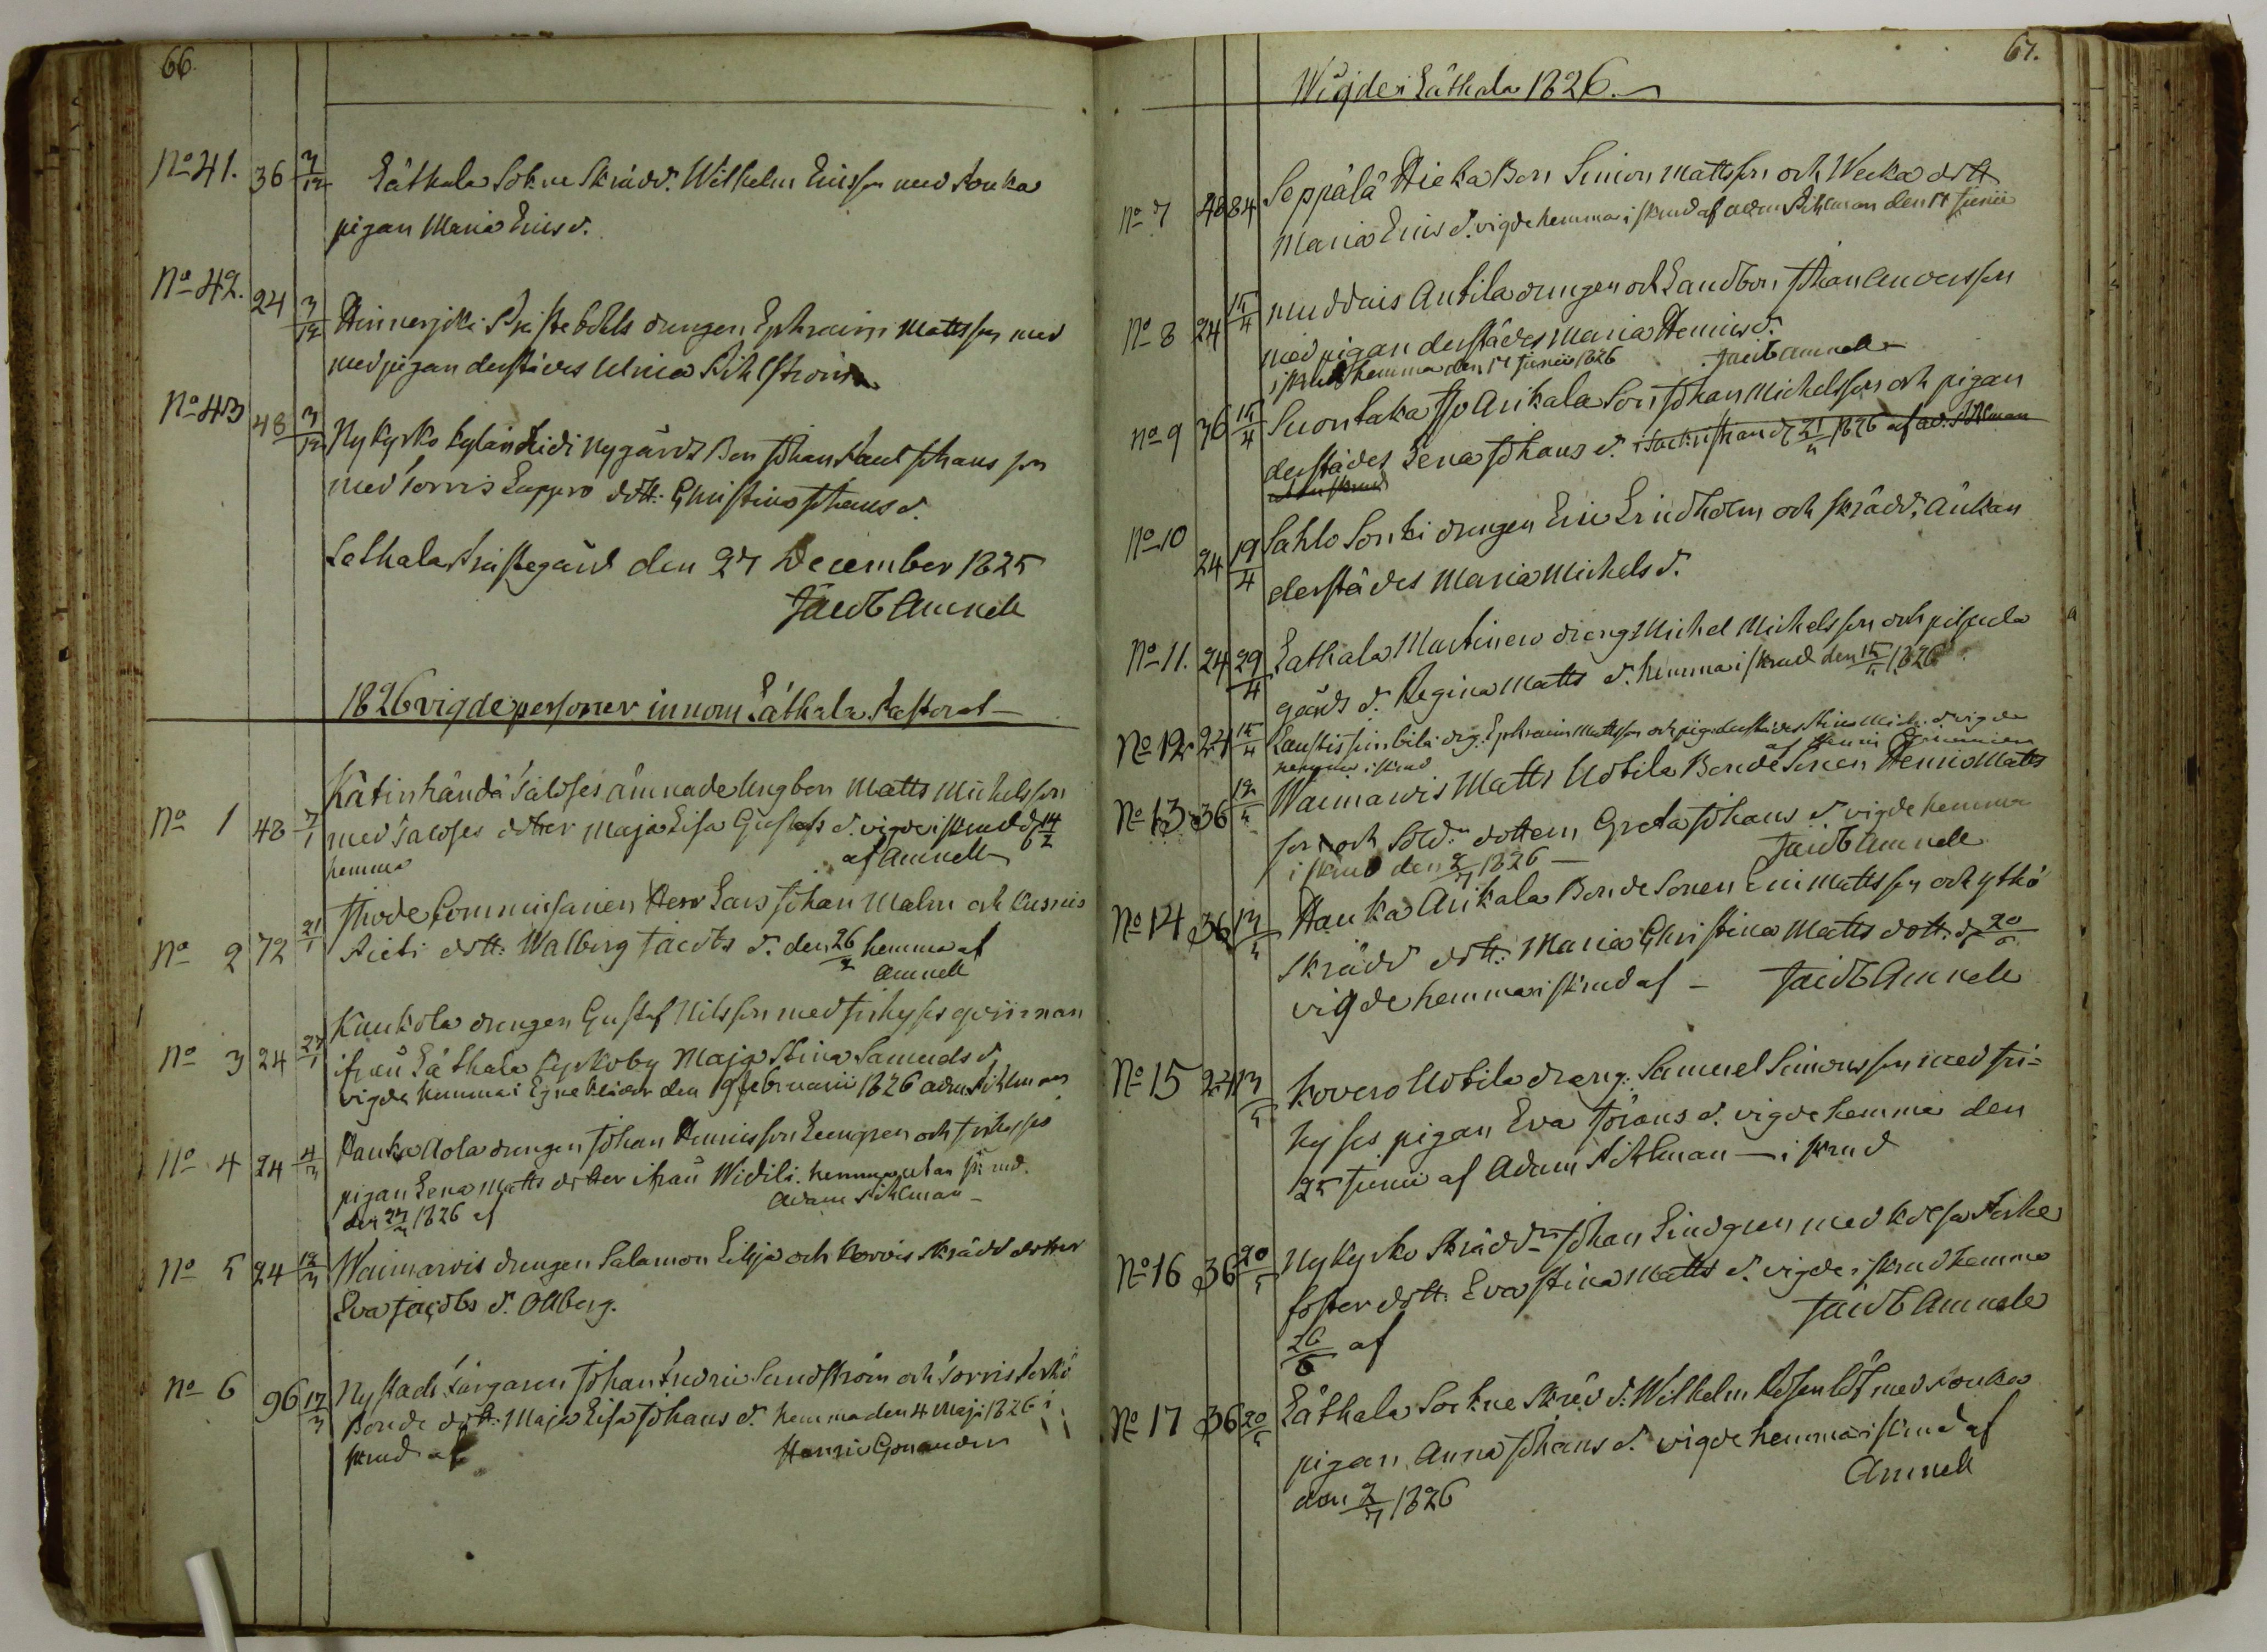 66.
No 41. 36 3/12 Låthala Sokne Skrädd. Wilhelm Ericsson med Fouka
pigan Maria Erics d.
No 42. 24 3/12 Hinnerjoki Prästebohls drengen Ephraim Mattsson med
med pigan derstädes Ulrica Sihlström
No 43 48 3/12 Nykyrko Kylänheidi Nygårds Bon Johan Johans son
med Torris Luppro dott. Christina Johans d.
Lethala Prästegård den 27 December 1825
Jacob Amnell
1826 vigde personer innom Låthala Pastorat
No 1 48 7/1 Kätinhändä Saloses ämnade Ungbon Matts Michelsson
med Saloses dotter Maja Lisa Gustafs d. vigde i skrud d. 14/2
hemma af Amnell
No 2 72 21/1 Commissarien Herr Lars Johan Malm och
dott: Walborg Jacobs d. den 26/2 hemma af
Amnell
No 3 24 27/1 Kaukola drengen Gustaf Nilsson med
ifrån Låthala Kyrkoby Maja Stina Samuels d.
vigde hemma i Egne kläder den 19 februarii 1826 Adam Sihlman
No 4 24 4/3 Hauka Nola drengen Johan Henricsson Lemgren och
pigan Lena Matts dotter ifrån Widilä. hemma utan skrud.
den 27/3 1826 af Adam Sihlman
No 5 24 12/3 Waimaris drengen Salamon Lilja och Korvis Skrädd dotter
Eva Jacobs d. Ollberg.
No 6 96 17/3 Nystads färgaren Johan Fredric Sandström och Torris
Bonde dott. Maja Lisa Johans d. hemma den 4 Maji 1826 i
skrud af Henric Gonander
67.
Wigde i Låthala 1826.
No 7 48 84 Seppälä Hieka Bon Simon Mattsson och Wecka dott
Maria Erics d. vigde hemma i skrud af Adam Sihlman den 17 Junii
No 8 24 15/4 Antila drengen och Landbon Johan Andersson
med pigan derstädes Maria Henrics d.
i skrud hemma den 17 Junii 1826 Jacob Amnell
No 9 36 15/4 Suontaka Arikala Son Johan Michelsson och pigan
derstädes Lena Johans d. i Sachristian d. 21/5 1826 af Ad. Sihlman
utan skrud
No 10 24 19/4 Sahlo Sonki drengen Eric Lindholm och skrädd. Änkan
derstädes Maria Michels d.
No 11. 24 29/4 Lathala Martinen dreng Michel Michelsson och
gårds d. Regina Matts d. hemma i skrud den 15/5 1826
No 12. 24 15/4 Laustis drg. Ephraim Mattsson och pig. derstädes Stina Mich. d. vigde
hemma i skrud af Henric
No 13. 36 12/5 Waimaris Matts Uotila Bonde Sonen Henric Matts
son och Sold.n dottern Greta Johans d. vigde hemma
i skrud den 2/7 1826 Jacob Amnell
No 14 36 13/5 Hauka Arikala Bonde Sonen Eric Mattsson och
Skrädd dott. Maria Christina Matts dott. d. 20/6
vigde hemma i skrud af Jacob Amnell
No 15 24 13/5 Kovero Uotila dreng. Samuel Simonsson med
pigan Eva Görans d. vigde hemma den
25 Junii af Adam Sihlman i skrud
No 16 36 20/5 Nykyrko Skrädd.n Johan Lindgren med
foster dott. Eva Stina Matts d. vigde i skrud hemma
26/6 af Jacob Amnell
No 17 36 20/5 Låthala Sockne Skrädd. Wilhelm Rosenlöf med Fouka
pigan Anna Johans d. vigde hemma i skrud af
den 2/7 1826 Amnell